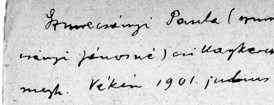 Szmrecsányi Paula (szmre
csányi Jánosné) csillagkeres
megh. Vékén 1901. junius